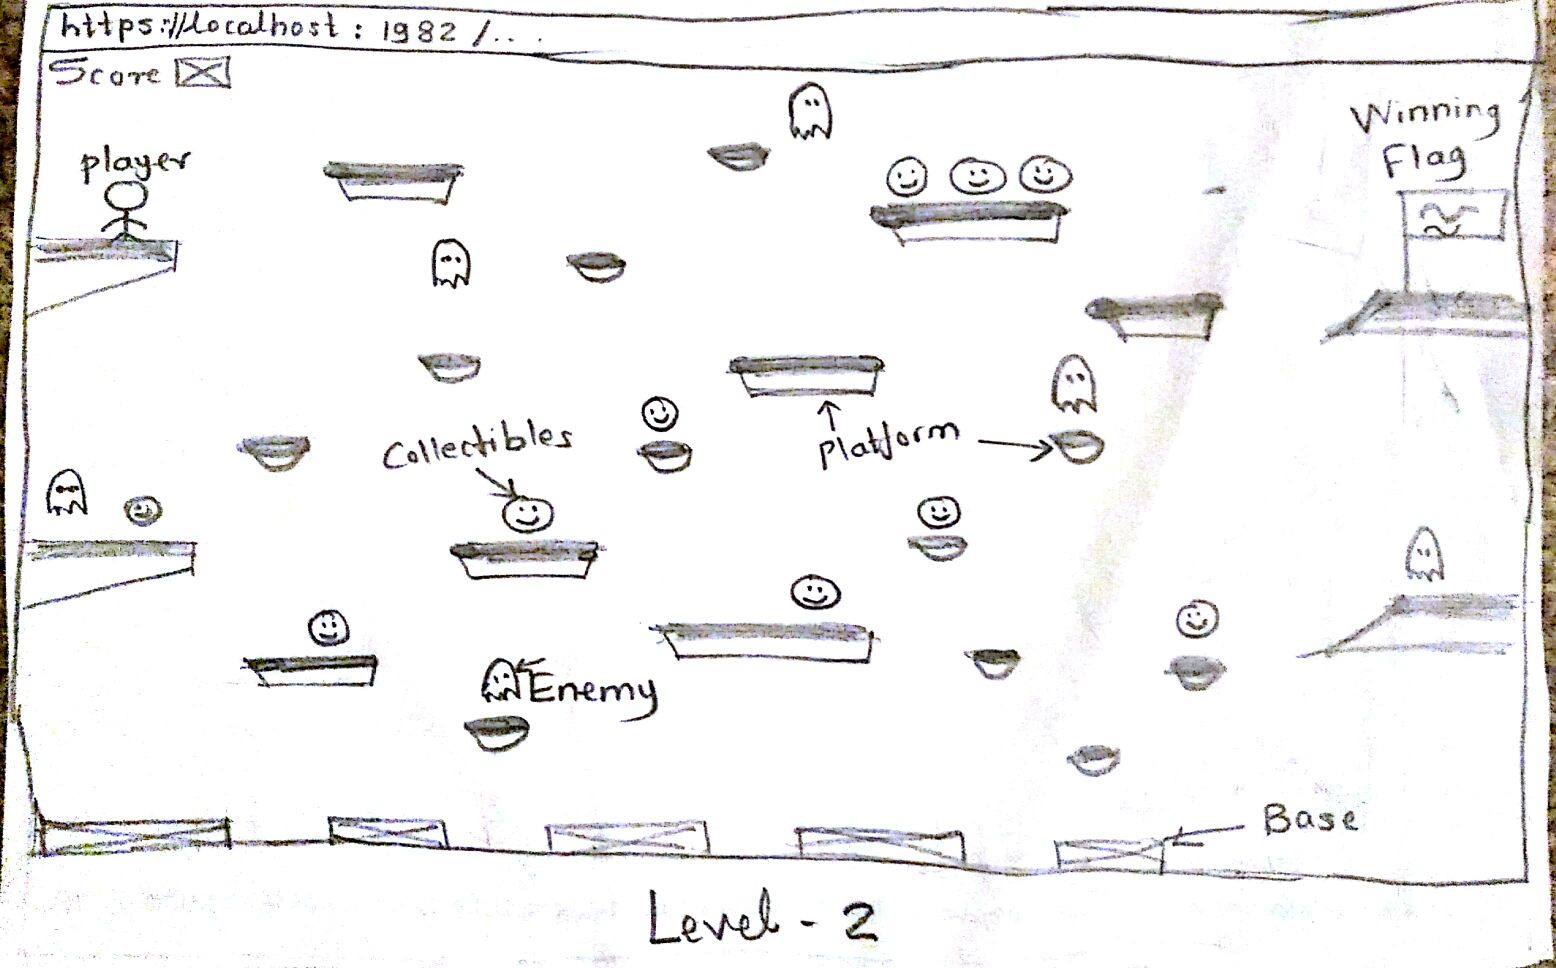 https://localhost : 1982 /...
Score
player
Winning
Flag
Collectibles
Platform
Enemy
Base
Level - 2